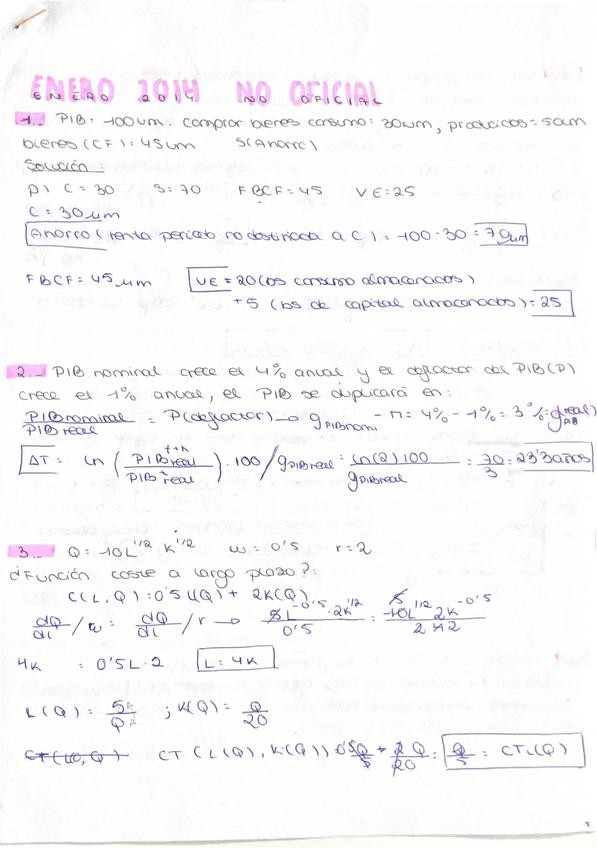 ENERO 2014 NO OFICIAL
1.- PIB = 100um. comprar bienes consumo = 30um, producidos = 50um
bienes (CF) = 45um S(Ahorro)
Solución:
D) C = 30 S = 70 FBCF = 45 VE = 25
C = 30um
Ahorro (renta periodo no destinada a C) = 100 - 30 = 70um
FBCF = 45um VE = 20 (los consumo almacenados)
+ 5 (los de capital almacenados) = 25
2.- PIB nominal crece el 4% anual y el deflactor del PIB (P)
crece el 1% anual, el PIB se duplicará en:
PIB nominal / PIB real = P(deflactor) → g PIB nomi - π = 4% - 1% = 3% = g real PIB
ΔT = ln (PIB real t+n / PIB real t) · 100 / g PIB real = ln(2) 100 / g PIB real = 70/3 = 23'3 años
3.- Q = 10L^1/2 · K^1/2 w = 0'5 r = 2
¿Función coste a largo plazo?:
C(L,Q) = 0'5 L(Q) + 2K(Q)
dQ/dL / w = dQ/dL / r → 5L^-0'5 · 2K^1/2 / 0'5 =
4K = 0'5L · 2 L = 4K
L(Q) = ; K(Q) = Q/20
CT (L(Q), K(Q)) = CTL(Q)